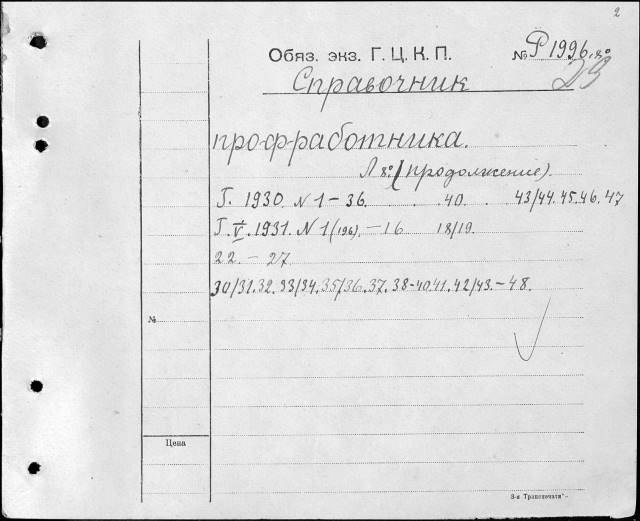 2
Обяз. экз. Г. Ц. К. П. № P 1996. 8°
Справочник 29
проф-работника.
Л 8° (продолжение).
Г. 1930. N 1-36. 40. 43/44.45.46.47
Г. V. 1931. N 1(196). -16 18/19.
22. - 27
30/31.32.33/34.35/36.37.38-40.41.42/43.-48.
№
Цена
3-я Транспечати"-